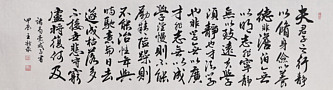 夫君子之行静
以脩身儉以養
德非澹泊無
以明志非寧静
無以致遠夫學
須静也才須學
也非學無以廣
才非志無以成
學慆慢則不能
勵精險躁則
不能治性年與
時馳意與日去
遂成枯落多
不接世悲守窮
廬將復何及
諸葛亮誡子書
甲午